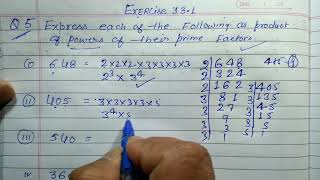 EXERCISE 13.1
Q.5 Express each of the Following as product
of powers of their prime Factors
(i) 648 = 2×2×2×3×3×3×3
2³ × 3⁴ ✓
(ii) 405 = 3×3×3×3×5
3⁴×5
(iii) 540 =
36
2 648
2 324
2 162
3 81
3 27
3 9
3 3
1
3 405
3 135
3 45
3 15
5 5
1